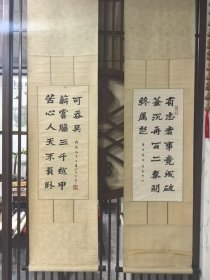 有志者事竟成破
釜沉舟百二秦關
終屬楚
苦心人天不負臥
薪嘗膽三千越甲
可吞吳